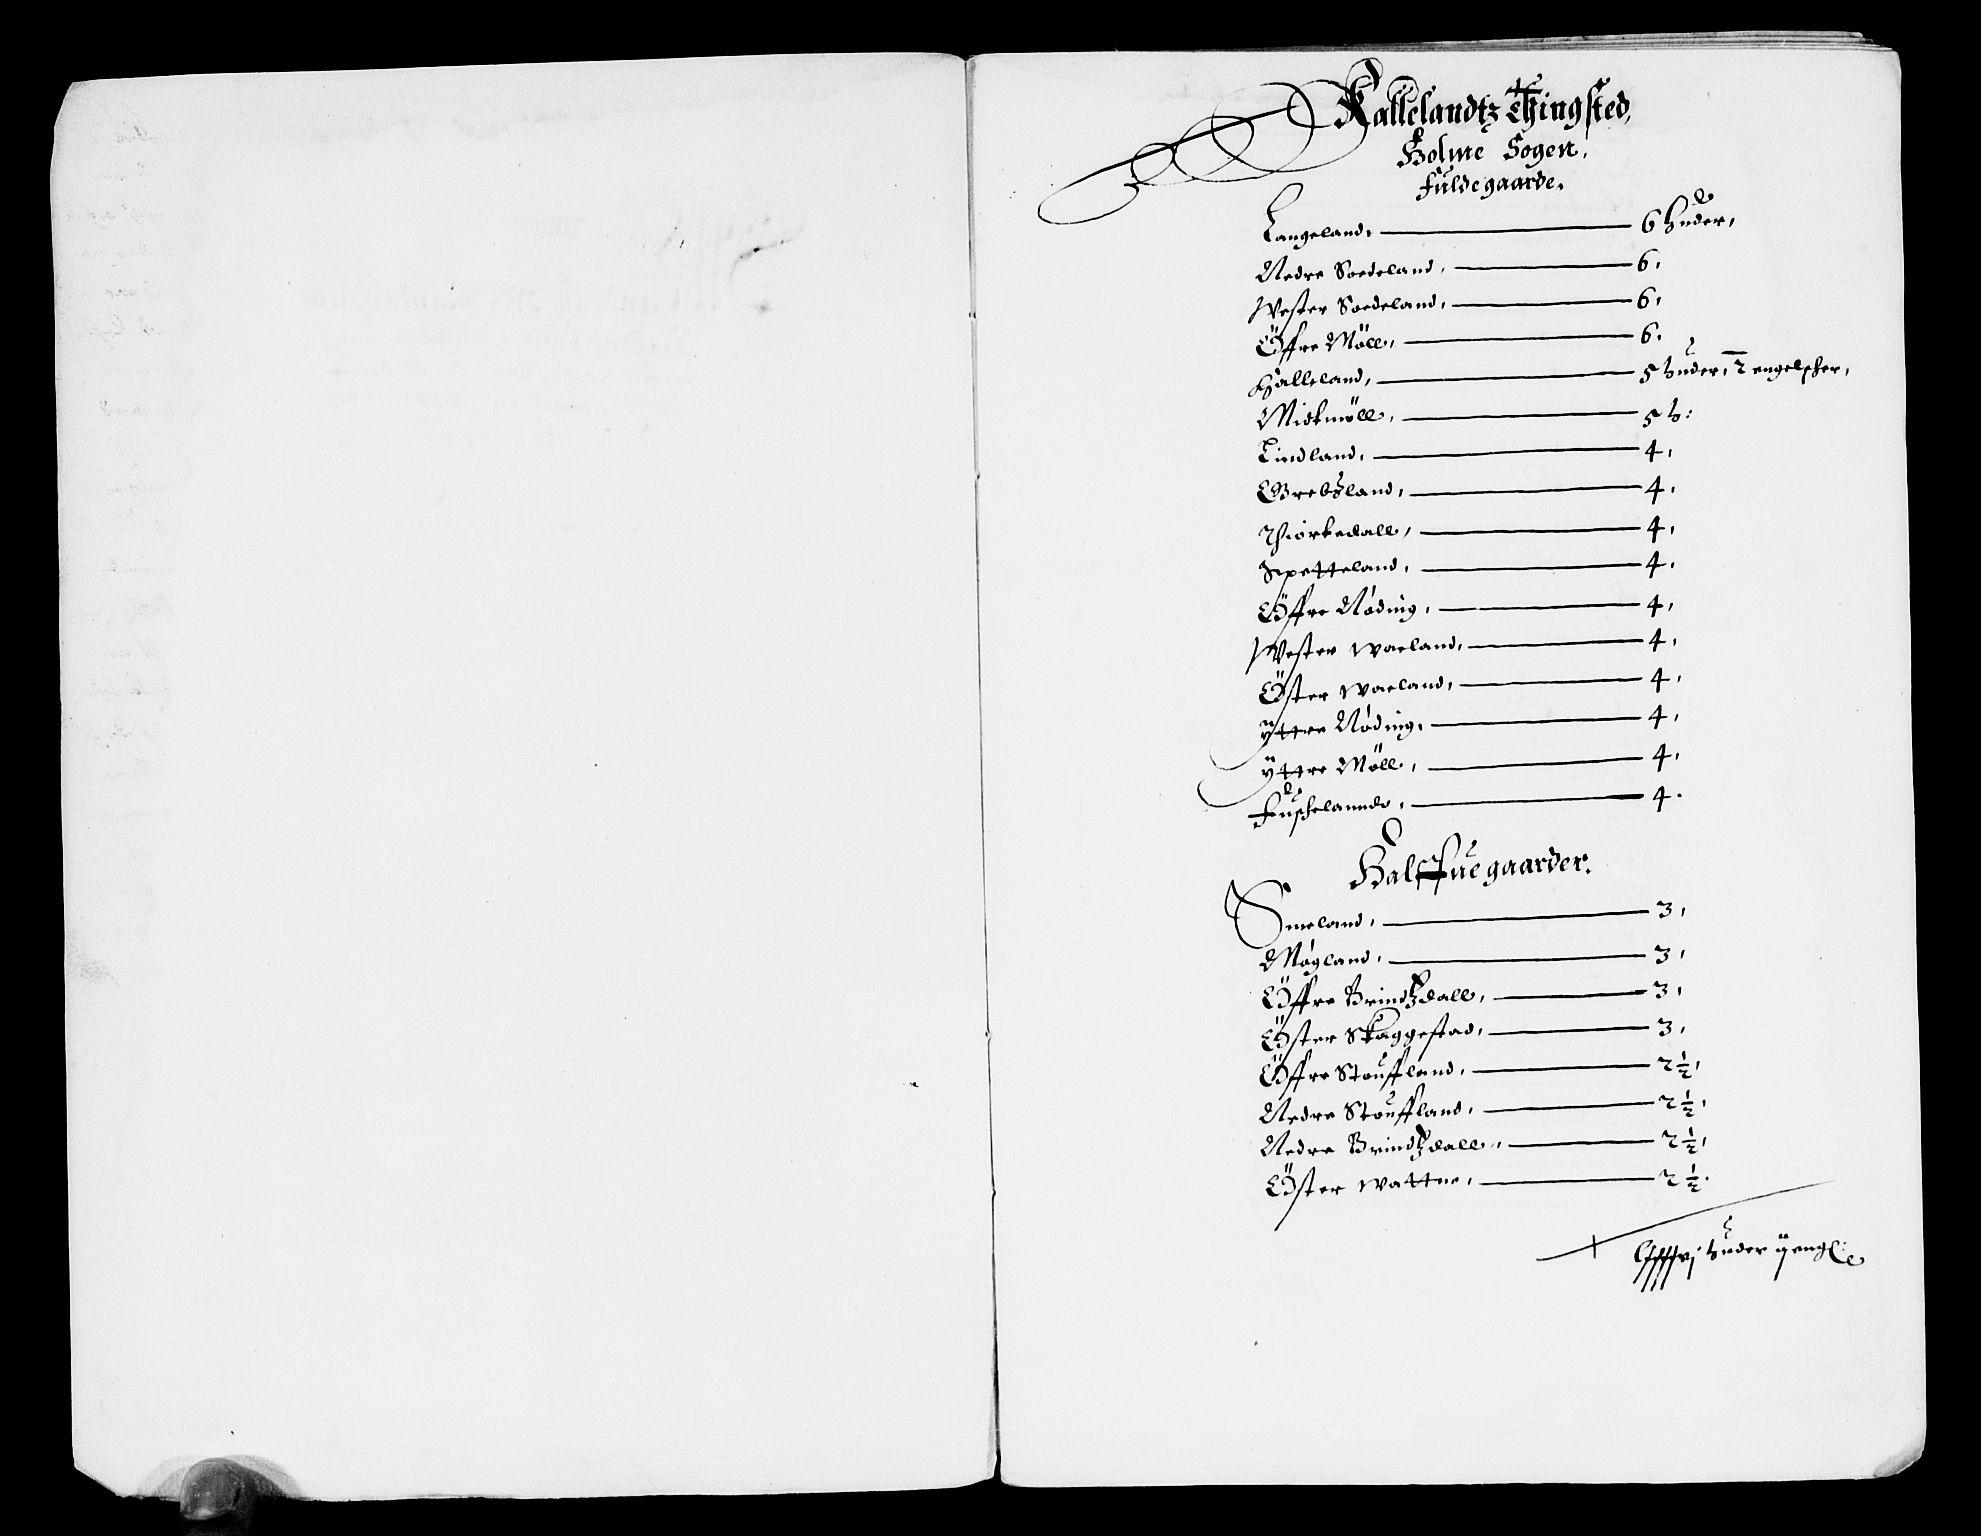 Hallelandtz Thingsted,
Holme Sogen,
Fuldegaarde.
Langeland, 6 huder,
Nedre Soedeland, 6,
Wester Soedeland, 6,
Öffre Möll, 6.
Halleland, 5 huder, 2 engelscher,
Midtmöll, 5 h:
Lindland, 4,
Grebsland, 4,
Thiorkedall, 4,
Spetteland, 4,
Öffre Nöding, 4,
Wester Waeland, 4,
Öster Waeland, 4,
Yttre Nöding, 4,
Yttre Möll, 4,
Fuschelanndt, 4.
Halffuegaarder.
Smeland, 3,
Mögland, 3,
Öffre Brindtzdall, 3,
Öster Skaggestad, 3,
Öffre Stouffland, 2 1/2,
Nedre Stouffland, 2 1/2,
Nedre Brindtzdall, 2 1/2,
Öster Wattne, 2 1/2.
huder ij engl: